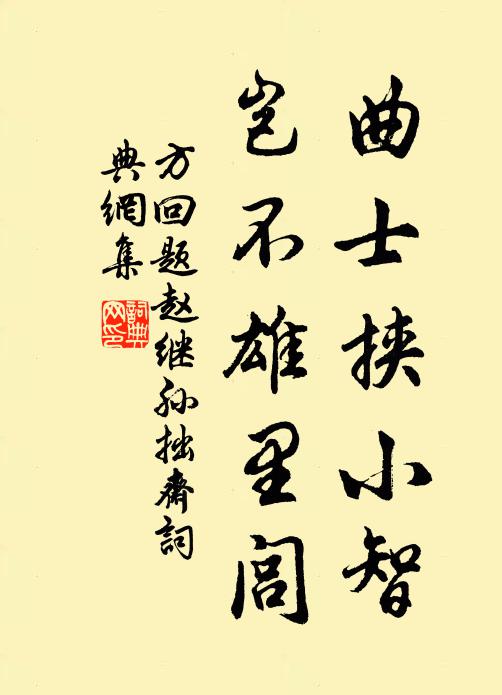 曲士挟小智
岂不雄里闾
方回题赵继孙拙斋詞
典網集
詞典
网印